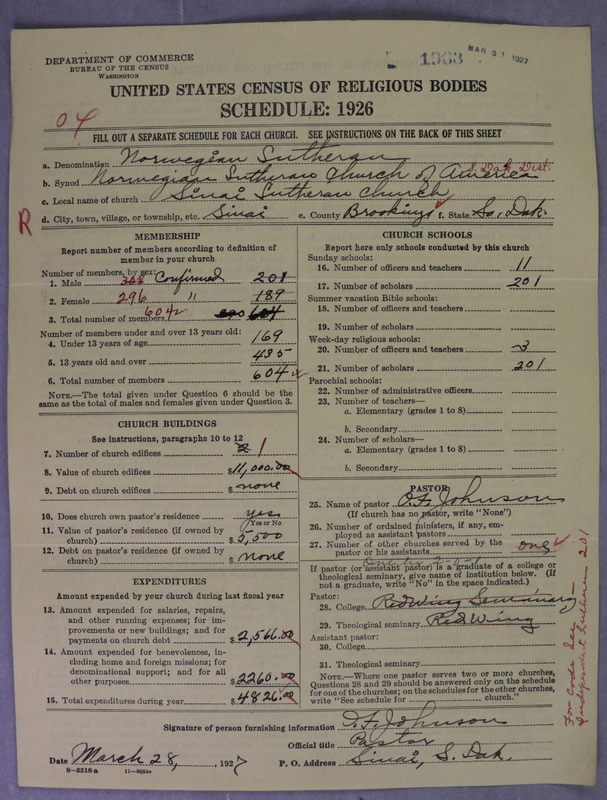 DEPARTMENT OF COMMERCE
BUREAU OF THE CENSUS
WASHINGTON
1963 MAR 31 1927
UNITED STATES CENSUS OF RELIGIOUS BODIES
SCHEDULE: 1926
04
FILL OUT A SEPARATE SCHEDULE FOR EACH CHURCH. SEE INSTRUCTIONS ON THE BACK OF THIS SHEET
a. Denomination Norwegian Lutheran
b. Synod Norwegian Lutheran Church of America S. Dak. Dist.
c. Local name of church Sinai Lutheran Church
d. City, town, village, or township, etc. Sinai e. County Brookings f. State So. Dak.
R
MEMBERSHIP
Report number of members according to definition of
member in your church
Number of members, by sex:
1. Male 308 Confirmed 201
2. Female 296 " 189
3. Total number of members 604 604
Number of members under and over 13 years old:
4. Under 13 years of age 169
5. 13 years old and over 435
6. Total number of members 604
NOTE.—The total given under Question 6 should be the
same as the total of males and females given under Question 3.
CHURCH BUILDINGS
See instructions, paragraphs 10 to 12
7. Number of church edifices 2 1
8. Value of church edifices $11,000.00
9. Debt on church edifices $ none
10. Does church own pastor's residence yes
Yes or No
11. Value of pastor's residence (if owned by
church) $ 2,500
12. Debt on pastor's residence (if owned by
church) $ none
EXPENDITURES
Amount expended by your church during last fiscal year
13. Amount expended for salaries, repairs,
and other running expenses; for im-
provements or new buildings; and for
payments on church debt $ 2,566.00
14. Amount expended for benevolences, in-
cluding home and foreign missions; for
denominational support; and for all
other purposes $ 2260.00
15. Total expenditures during year $ 4826.00
CHURCH SCHOOLS
Report here only schools conducted by this church
Sunday schools:
16. Number of officers and teachers 11
17. Number of scholars 201
Summer vacation Bible schools:
18. Number of officers and teachers
19. Number of scholars
Week-day religious schools:
20. Number of officers and teachers 3
21. Number of scholars 201
Parochial schools:
22. Number of administrative officers
23. Number of teachers—
a. Elementary (grades 1 to 8)
b. Secondary
24. Number of scholars—
a. Elementary (grades 1 to 8)
b. Secondary
PASTOR
25. Name of pastor O. F. Johnson
(If church has no pastor, write "None")
26. Number of ordained ministers, if any, em-
ployed as assistant pastors
27. Number of other churches served by the
pastor or his assistants one
If pastor (or assistant pastor) is a graduate of a college or
theological seminary, give name of institution below. (If
not a graduate, write "No" in the space indicated.)
Pastor:
28. College Red Wing Seminary
29. Theological seminary Red Wing
Assistant pastor:
30. College
31. Theological seminary
NOTE.—Where one pastor serves two or more churches,
Questions 28 and 29 should be answered only on the schedule
for one of the churches; on the schedules for the other churches,
write "See schedule for ______ church."
For Code See
Independent Lutheran 201
Signature of person furnishing information O. F. Johnson
Official title Pastor
Date March 28, 1927 P. O. Address Sinai, S. Dak.
8—5518a 11—9054a